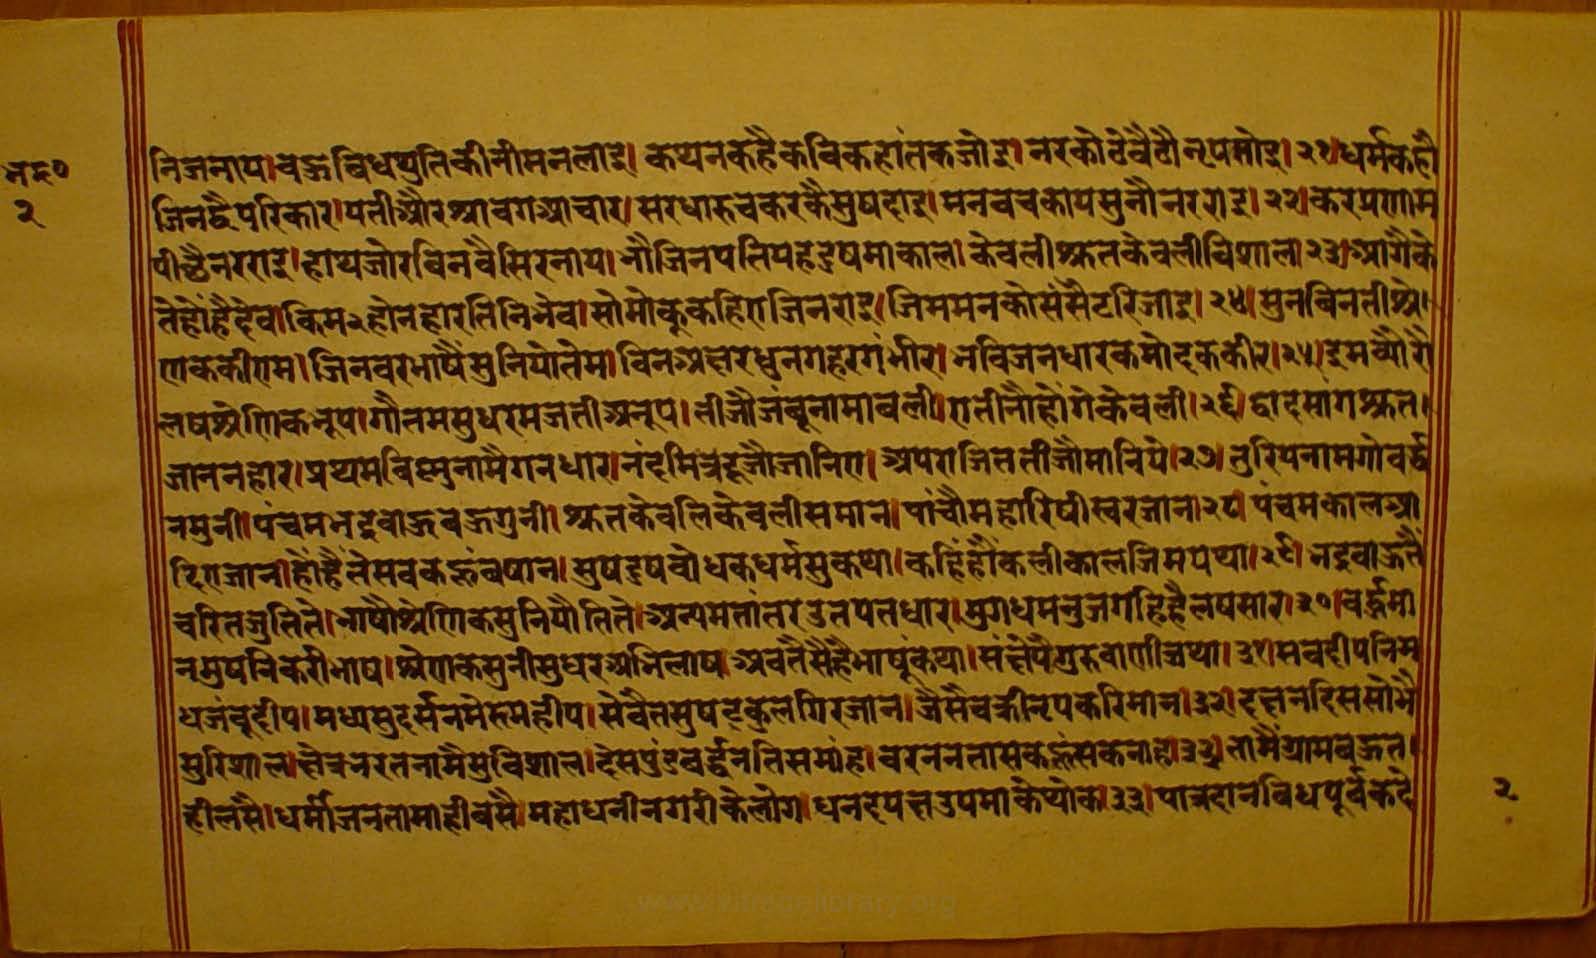 भद्र०
२
निजनाय। बहुबिधथुतिकीनीमनलाइ। कथनकहैकविकहांतकजोइ। नरकोठेबैठौनृपसोइ। २१। धर्मकहौ
जिनद्वैपरिकार। यतीऔरश्रावगआचार। सरधारुचकरकैसुषदाइ। मनवचकायसुनौनरराइ। २२। करपरणाम
पीछैनरराइ। हाथजोरविनवैसिरनाय। भौजिनपतियहदुषमाकाल। केवलीश्रुतकेवलीविशाल। २३। आगैके
तेहोंहैदेव। किम२होनहारतिनिभेव। सोमोकूकहिएजिनराइ। जिममनकोसंसैटरिजाइ। २४। सुनविनतीश्रे।
णककीएम। जिनवरभाषैंसुनियोतेम। विनअत्तरधुनगहरगंभीर। भविजनधारकमोदककीर। २५। इमव्यौरौ
लषश्रेणिकभूप। गौतमसुधरमजतीअनूप। तीजौजंबूनामावली। एतीनौंहोंगेकेवली। २६। द्वादसांगश्रुत।
जाननहार। प्रथमविस्नुनामैगनधार। नंदमित्रदूजौजानिए। अपराजिततीजौमानिये। २७। तुरियनामगोवर्द्ध
नमुनी। पंचमभद्रबाहुबहुगुनी। श्रुतकेवलिकेवलीसमान। पांचौमहारिषीस्वरजान। २८। पंचमकालआ
रिएजान। होंहैंतेसबकह्लंबषान। सुषदुषबोधकधर्मसुकथा। कहिंहौंकलीकालजिमपथा। २९। भद्रबाहुतैं
चरितजुतिते। भाषौश्रेणिकसुनियौतिते। अन्यमतांतरउतपतधार। मुगधमनुजगहिहैलषसार। ३०। वर्द्धमा
नमुषविकरीभाष। श्रेणकसुनीसुधरअभिलाष। अबतैसैहैभाषूंकथा। संक्षेपैगुरुवाणीजथा। ३१। सबदीपनिम
धजंबूदीप। मध्यसुदर्सनमेरुमहीप। सेवैतसुषट्कुलगिरजान। जैसैचक्रीनृपकरिमान। ३२। दत्तनदिससोभै
सुरिशाल। क्षेत्रभरतनामैसुविशाल। देसपुंडवर्द्धनतिसमांह। वरननतासकह्लंसकनाहा। ३३। तामैंग्रामबहुत।
हीलसै। धर्मीजनतामाहीबसै। महाधनीनगरीकेलोग। धनदपत्तउपमाकेथोक। ३३। पात्रदानबिधपूर्वकदे
२